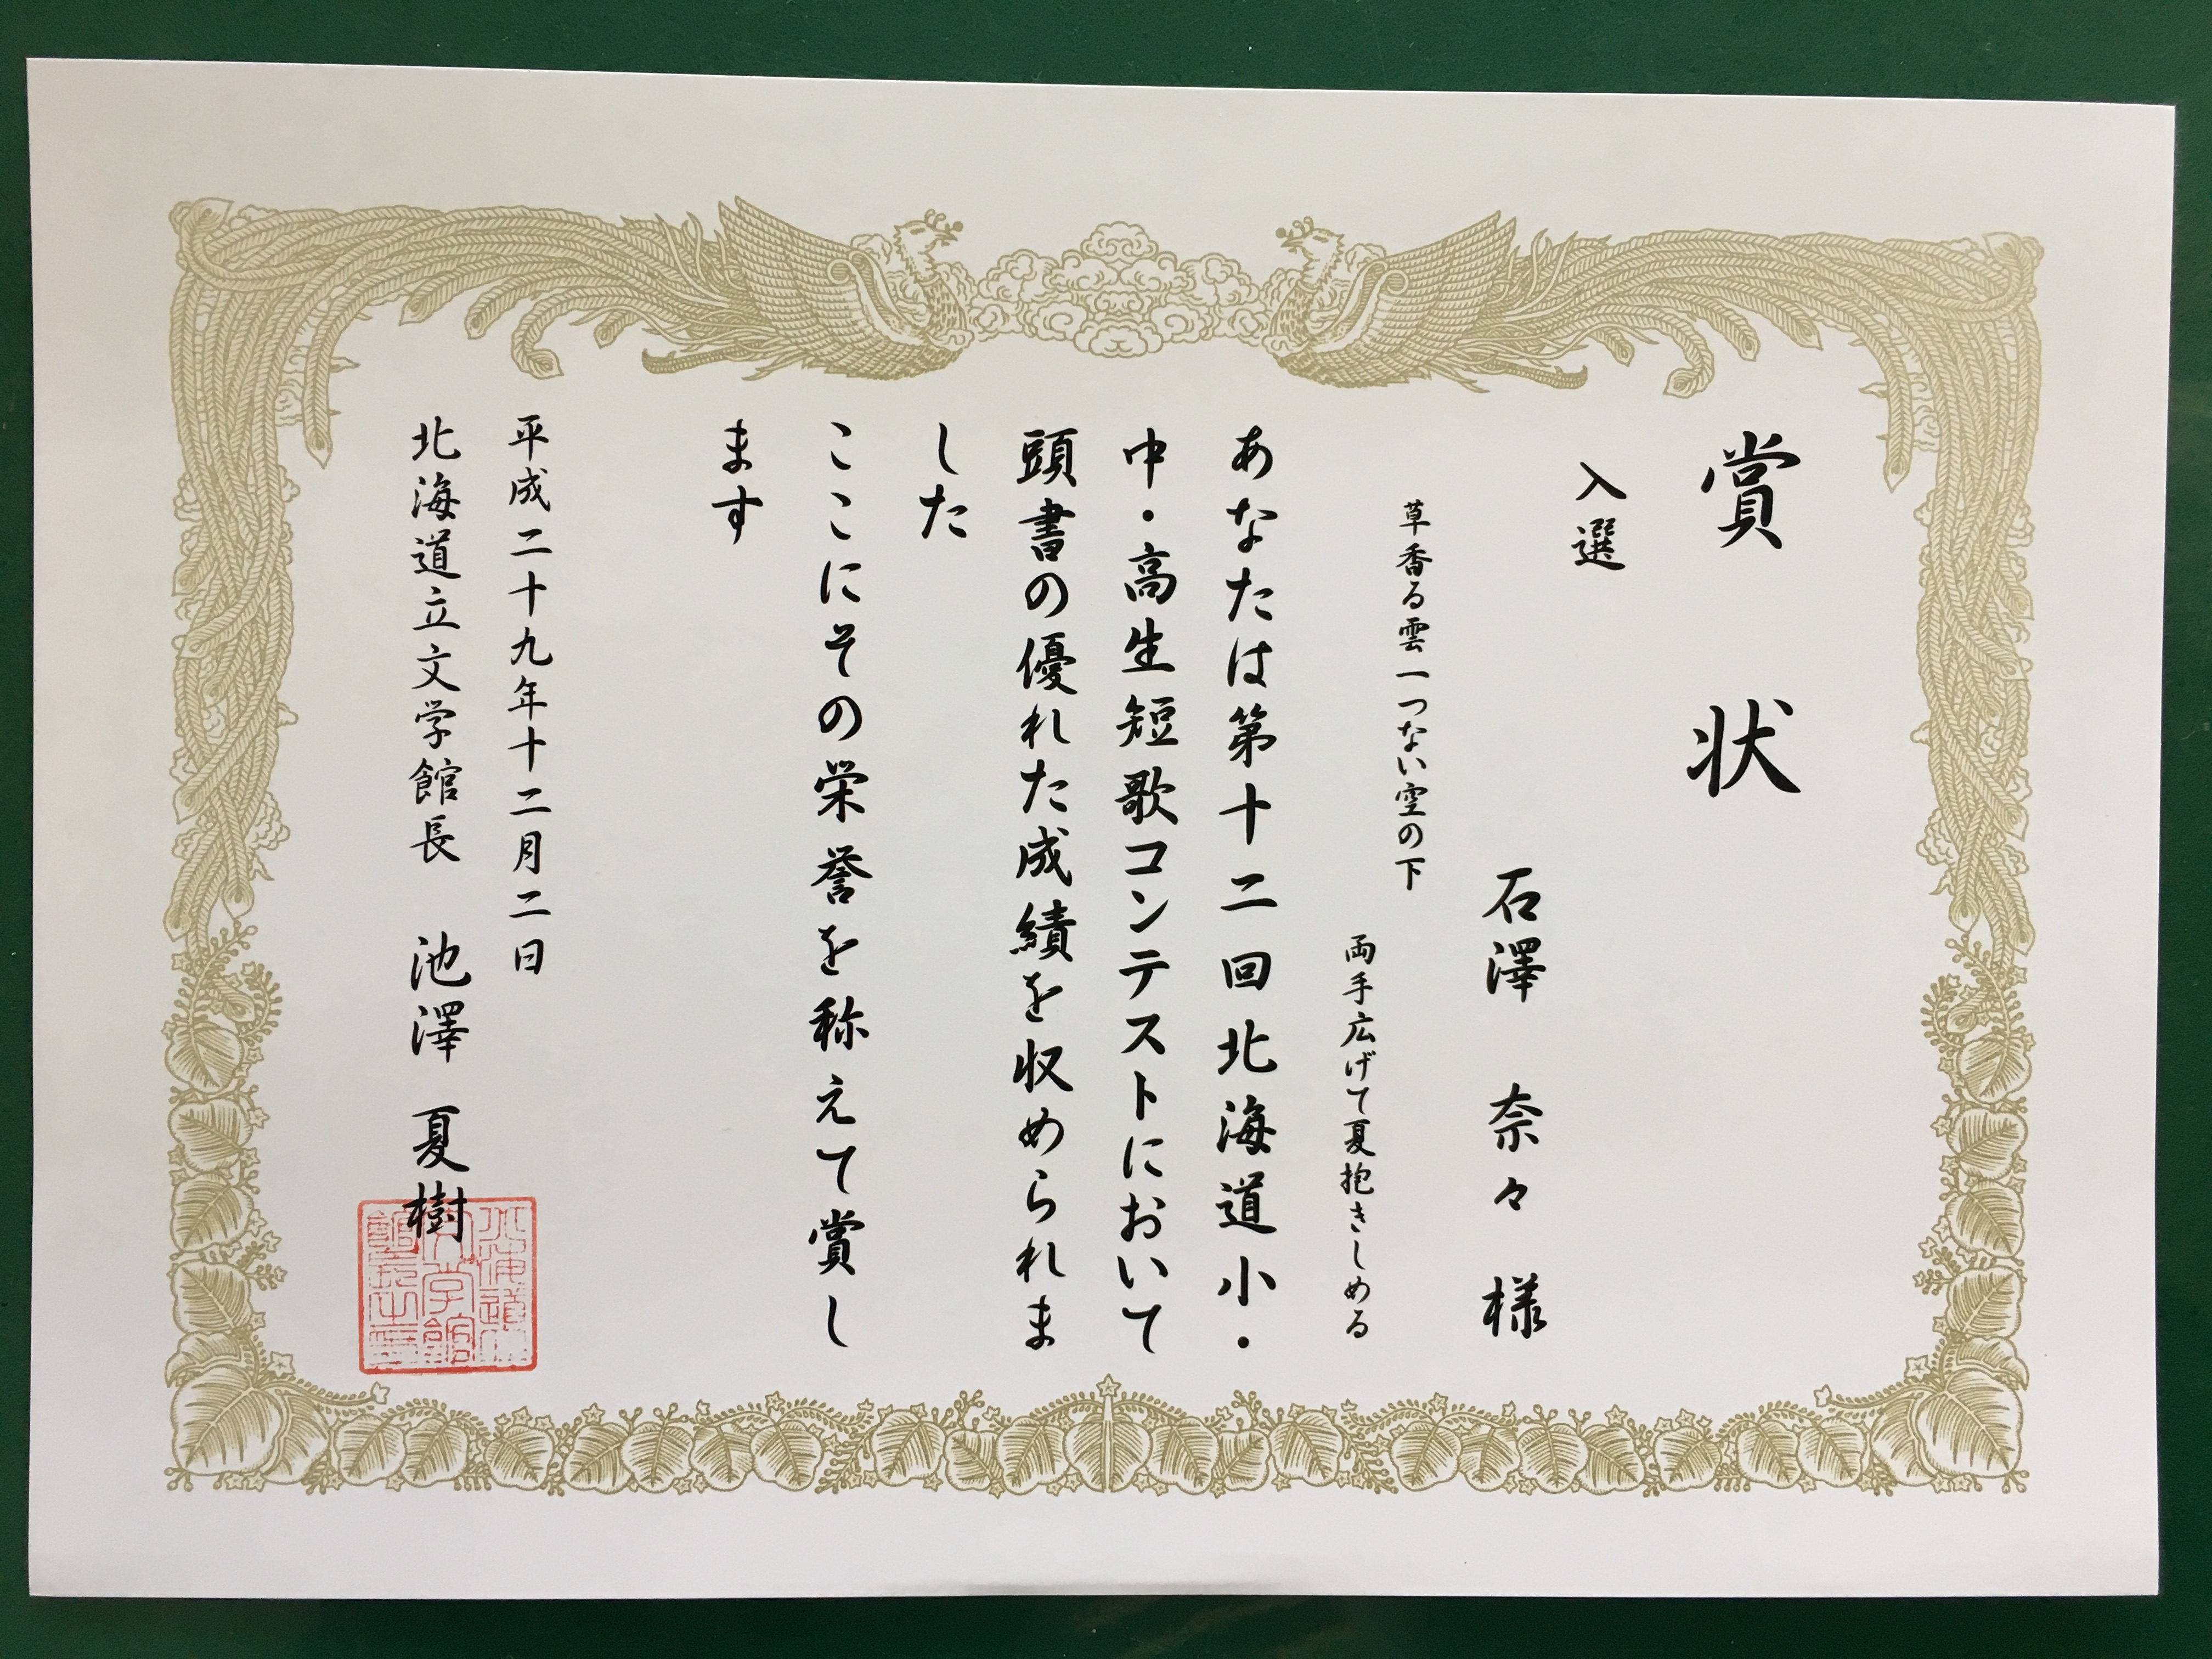 賞状
入選
石澤 奈々 様
草香る雲一つない空の下
両手広げて夏抱きしめる
あなたは第十二回北海道小・
中・高生短歌コンテストにおいて
頭書の優れた成績を収められま
した
ここにその栄誉を称えて賞し
ます
平成二十九年十二月二日
北海道立文学館長 池澤 夏樹